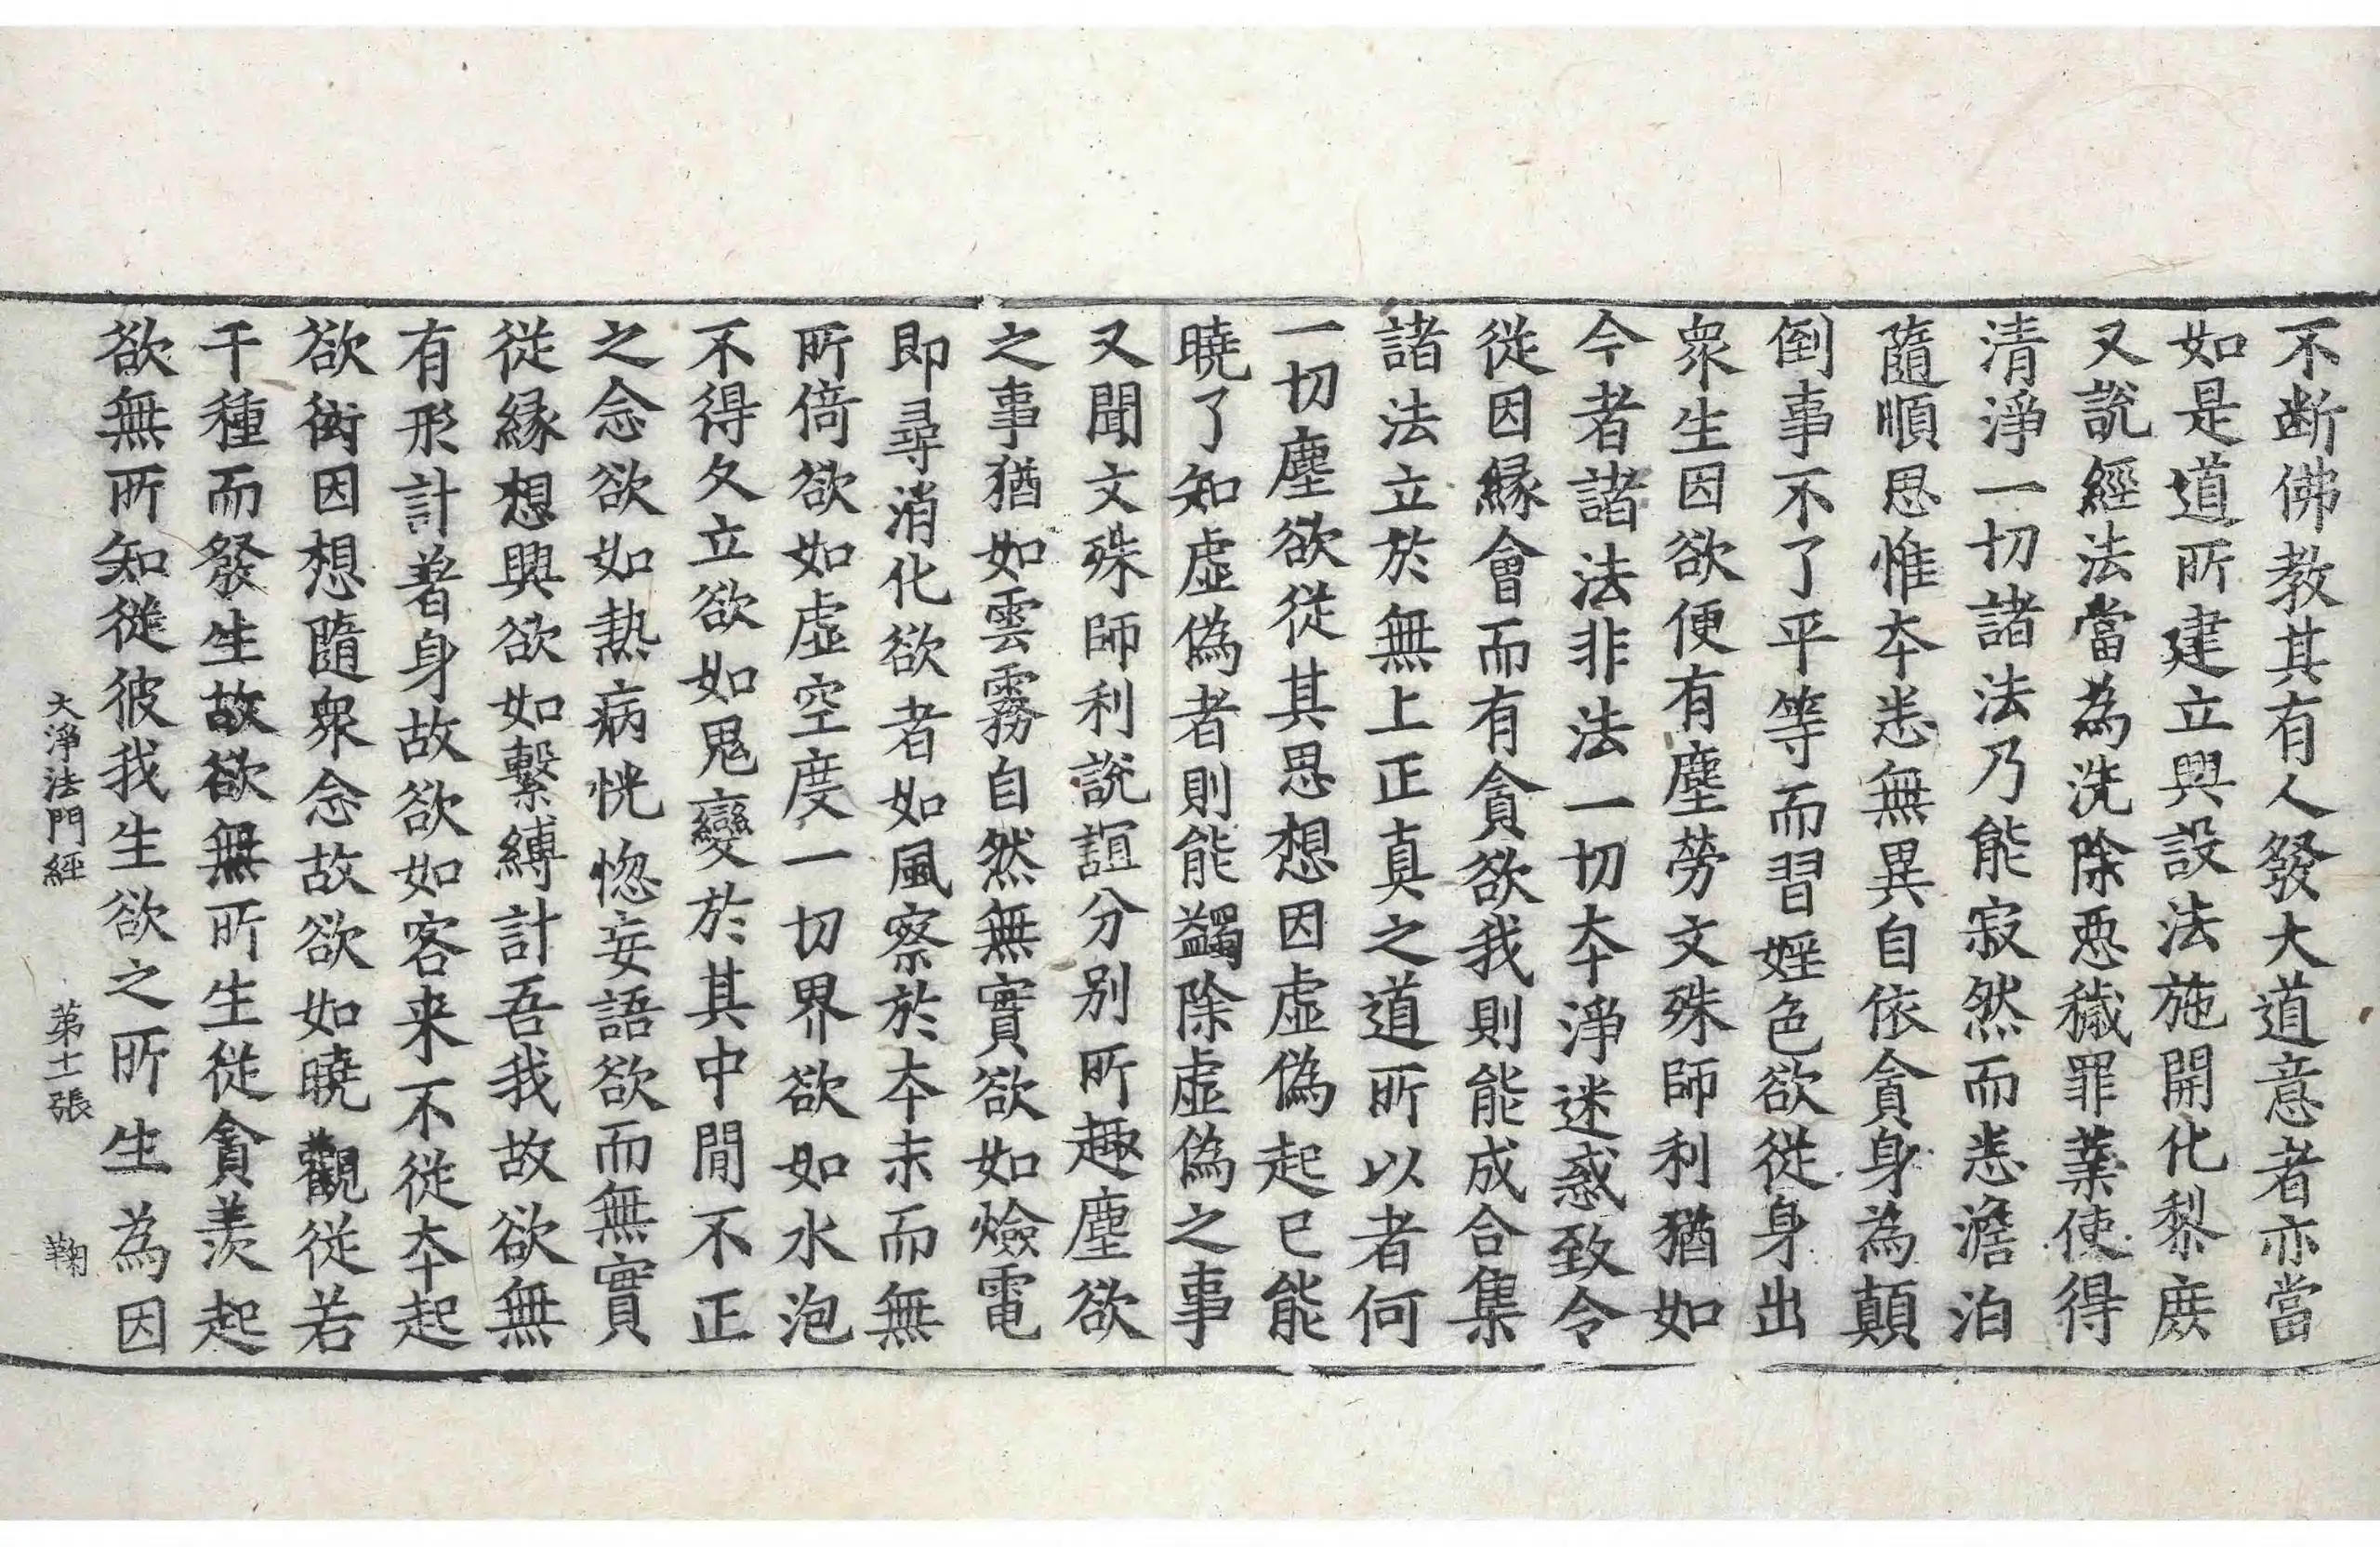 不断佛教其有人發大道意者亦當
如是道所建立興設法施開化黎庶
又說經法當為洗除惡穢罪業使得
清淨一切諸法乃能寂然而悉澹泊
隨順思惟本悉無異自依貪身為顛
倒事不了平等而習婬色欲從身出
衆生因欲便有塵勞文殊師利猶如
今者諸法非法一切本淨迷惑致令
從因緣會而有貪欲我則能成合集
諸法立於無上正真之道所以者何
一切塵欲從其思想因虛偽起已能
曉了知虛偽者則能蠲除虛偽之事
又聞文殊師利說誼分別所趣塵欲
之事猶如雲霧自然無實欲如爓電
即尋消化欲者如風察於本末而無
所倚欲如虛空度一切界欲如水泡
不得久立欲如鬼變於其中間不正
之念欲如熱病恍惚妄語欲而無實
從緣想興欲如繫縛計吾我故欲無
有形計著身故欲如客来不從本起
欲衒因想隨衆念故欲如曉觀從若
干種而發生故欲無所生從貪羨起
欲無所知從彼我生欲之所生為因
大淨法門經 第十一張 鞠